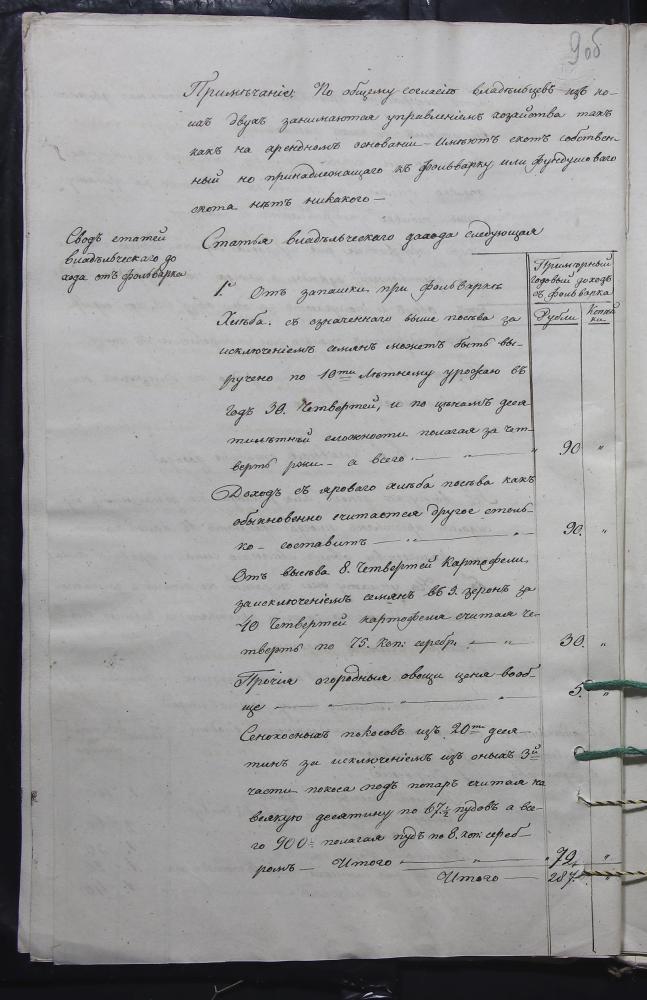 9 об
Примѣчаніе; По общему согласію владѣльцевъ изъ ко-
ихъ двухъ занимаются управленіемъ хозяйства такъ
какъ на арендномъ основаніи – имѣютъ скотъ собствен-
ный но принадлежащаго къ фольварку или фундушоваго
скота нѣтъ никакого —
Сводъ статей
владѣльческаго до
хода отъ фольварка
Статья владѣльческаго дохода слѣдующая
Примѣрный
годовый доходъ
съ фольварка
Рубли
Копѣй
ки
1.й Отъ запашки при фольваркѣ
Хлѣба. съ означеннаго выше посѣва за
исключеніемъ семянъ можетъ быть вы-
ручено по 10ти лѣтнему урожаю въ
годъ 30. Четвертей, и по цѣнамъ деся
тилѣтней сложности полагая за чет-
верть ржи – а всего „ — „ — „ 90 „
Доходъ съ яроваго хлѣба посѣва какъ
обыкновенно считается другое столь-
ко – составитъ — „ — „ 90. „
Отъ высѣва 8. Четвертей Картофели,
заисключеніемъ семянъ въ 5. зеронъ за
40 Четвертей картофеля считая че-
тверть по 75. Коп: серебр. — „ 30. „
Прочія огородныя овощи цѣня вооб-
ще — „ — „ — „ 5. „
Сенокосныхъ покосовъ изъ 20ти деся-
тинъ за исключеніемъ изъ оныхъ 3й
части покоса подъ попаръ считая на
всякую десятину по 67½ пудовъ а все-
го 900 полагая пудъ по 8. коп: сереб-
ромъ – Итого — „ — „ 72, „
Итого — 287. „